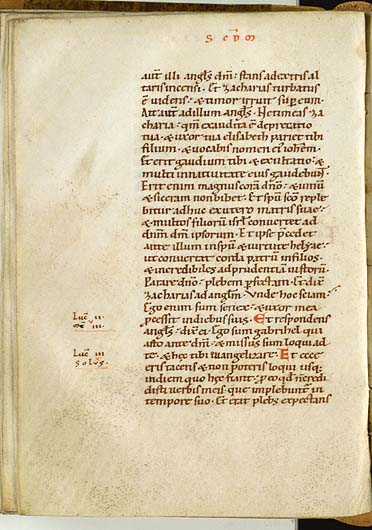 S C̄D̄M
aut̄ illi angl̄s dn̄i stans adextris al
taris incensi. Et zacharias turbatus
ē uidens. & timor irruit sup̄ eum.
Ait aut̄ adillum angl̄s. Netimeas za
charia. qm̄ exaudita ē deprecatio
tua. & uxor tua elisabeth pariet tibi
filium. & uocabis nomen ei ioh̄em.
Et erit gaudium tibi & exultatio. &
multi innatiuitate eius gaudebunt.
Erit enim magnus corā dn̄o. & uinū
& siceram non bibet. Et sp̄u sc̄o reple
bitur adhuc exutero matris suae.
& multos filiorū isrl̄ conuertet ad
dn̄m dm̄ ipsorum. Et ipse p̄cedet
ante illum insp̄u & uirtute heliae.
ut conuertat corda patrū infilios.
& incredibiles adprudentiā iustorū.
Parare dn̄o plebem p̄fectam. Et dix̄
zacharias ad angl̄m. Vnde hoc sciam.
Ego enim sum senex. & uxor mea
processit indiebus suis. Et respondens
angl̄s. dix̄ ei. Ego sum gabrihel qui
asto ante dm̄. & missus sum loqui ad
te. & hęc tibi euangelizare. Et ecce
eris tacens & non poteris loqui usq;
indiem quo hęc fiant. p̄ eo qd̄ n̄ credi
disti uerbis meis que implebuntur in
tempore suo. Et erat plebs expectans
Luc̄ ii
Luc̄ iii
solus.